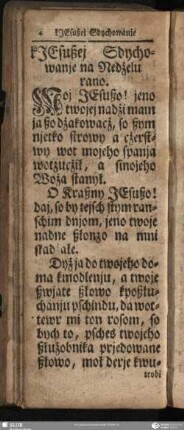 kJEsußej Sdychowanje
kJEsußej Sdycho-
wanje na Nedżelu
rano.
Moj JEsußo! jeno
twojej nadżi mam
ja ßo dżakowacż, so ßym
njetko strowy a cżerst-
wy wot mojeho spanja
wotzucżil, a sinojeho
Woża stanyl.
O Kraßny JEsußo!
daj, so by tejsch stym ran-
schim dnjom, jeno twoje
nadne ßlonzo na mni
stadżale.
Dyż ja do twojeho do-
ma kmodlenju, a twoje
ßwjate ßlowo kpoßlu-
chanju pschindu, da wot-
tewr mi ton rosom, so
bych to, psches twojeho
ßlużobnika prjedowane
ßlowo, moł derje kwu-
trobi